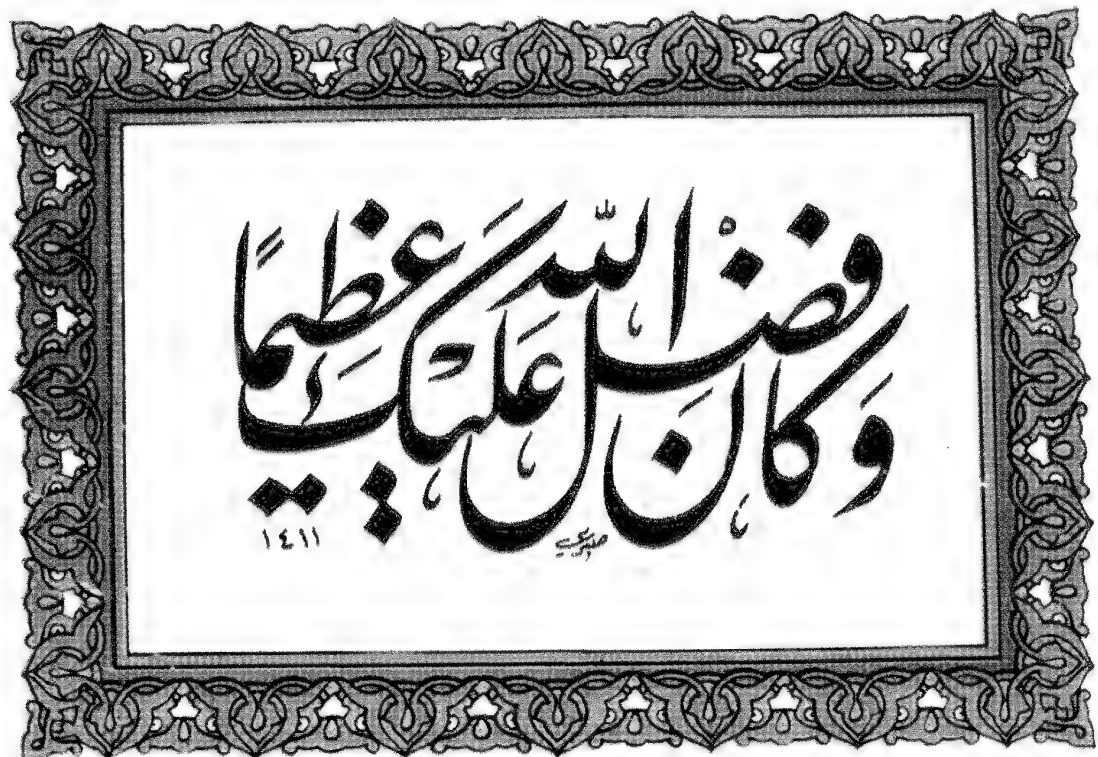 وَكَانَ فَضْلُ اللّٰهِ عَلَيْكَ عَظِيمًا
١٤١١